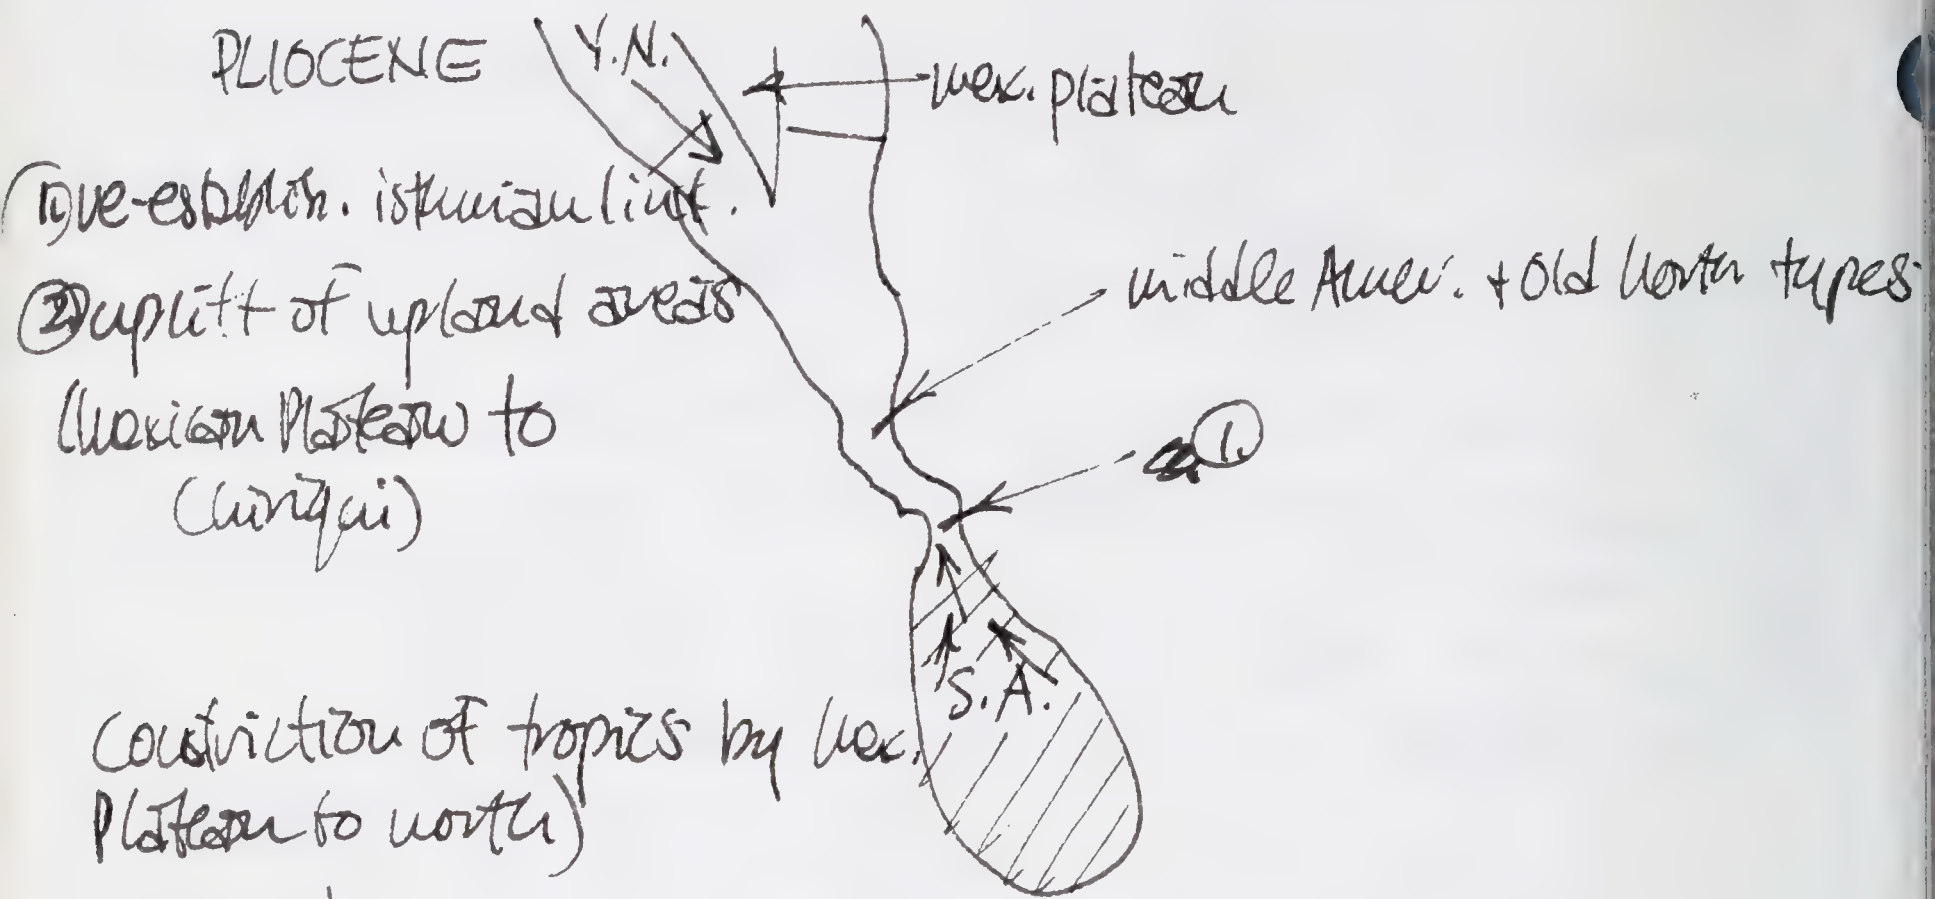 PLIOCENE
Y.N.
mex. plateau
(① re-establish. isthmian link.
② uplift of upland areas
(Mexican Plateau to
Chiriqui)
middle Amer. + Old North types
1.
S.A.
Constriction of tropics by Mex.
Plateau to north)